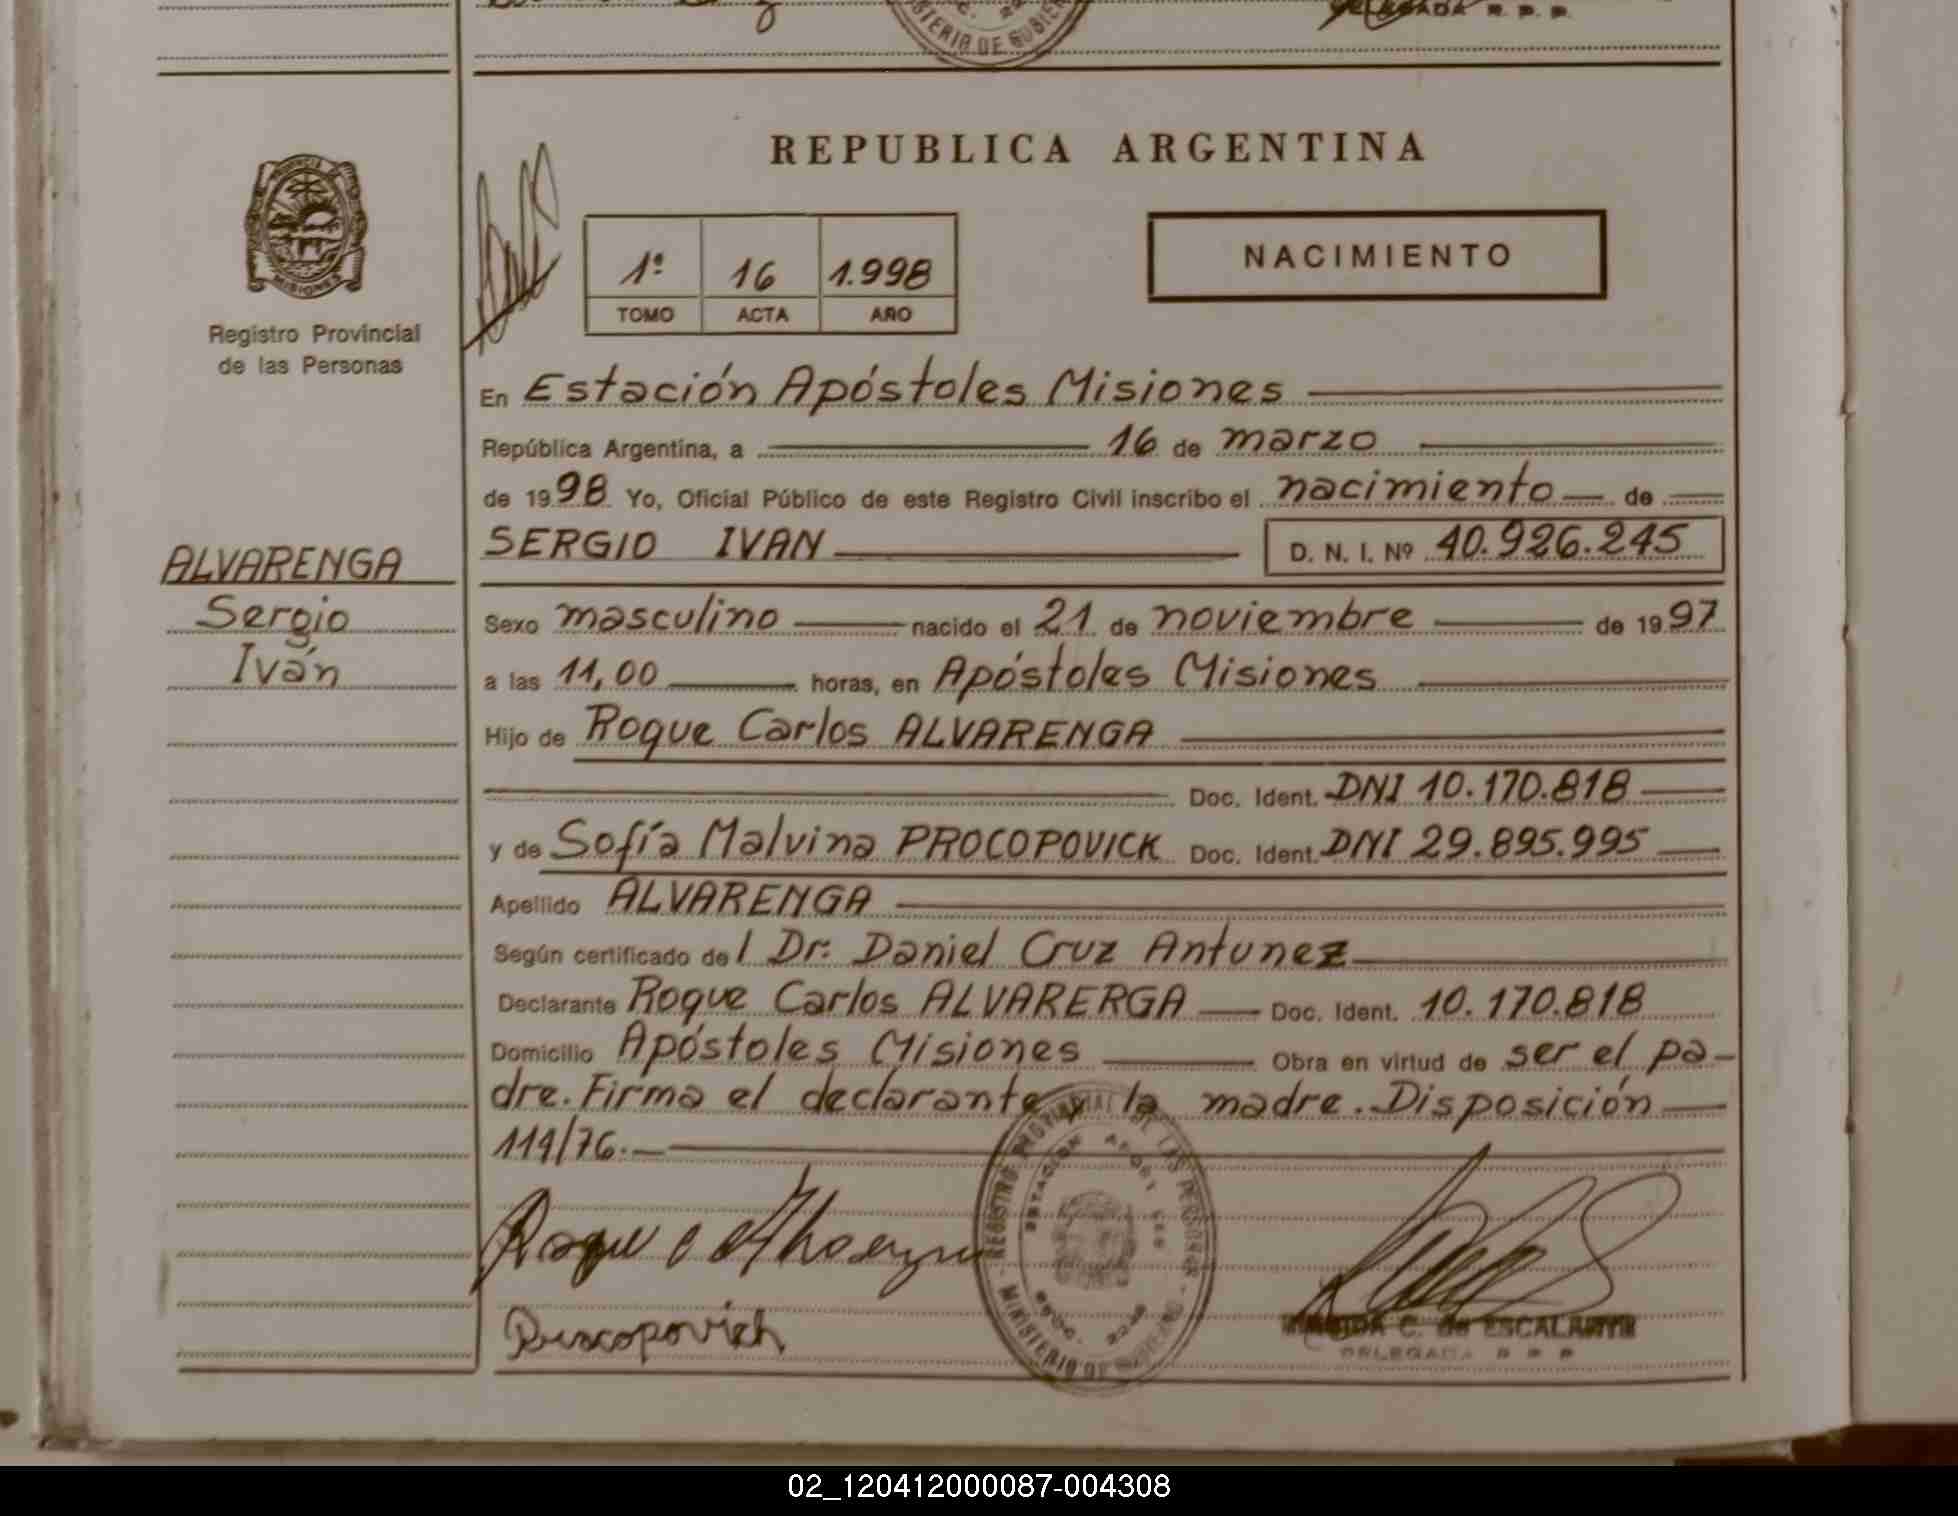 DELEGADA R. P. P.
MINISTERIO DE GOBIERNO
REPUBLICA ARGENTINA
PROVINCIA
MISIONES
Registro Provincial
de las Personas
1º 16 1.998
TOMO ACTA AÑO
NACIMIENTO
En Estación Apóstoles Misiones
República Argentina, a 16 de marzo
de 1998 Yo, Oficial Público de este Registro Civil inscribo el nacimiento de
SERGIO IVAN D. N. I. Nº 40.926.245
ALVARENGA
Sergio
Iván
Sexo masculino nacido el 21 de noviembre de 1997
a las 11,00 horas, en Apóstoles Misiones
Hijo de Roque Carlos ALVARENGA
Doc. Ident. DNI 10.170.818
y de Sofía Malvina PROCOPOVICK Doc. Ident. DNI 29.895.995
Apellido ALVARENGA
Según certificado de l Dr. Daniel Cruz Antunez
Declarante Roque Carlos ALVARERGA Doc. Ident. 10.170.818
Domicilio Apóstoles Misiones Obra en virtud de ser el pa-
dre. Firma el declarante y la madre. Disposición
119/76.-
REGISTRO PROVINCIAL DE LAS PERSONAS - MINISTERIO DE GOBIERNO -
ESTACION APOSTOLES
Roque
C. de ESCALANTE
DELEGADA R P P
02_120412000087-004308